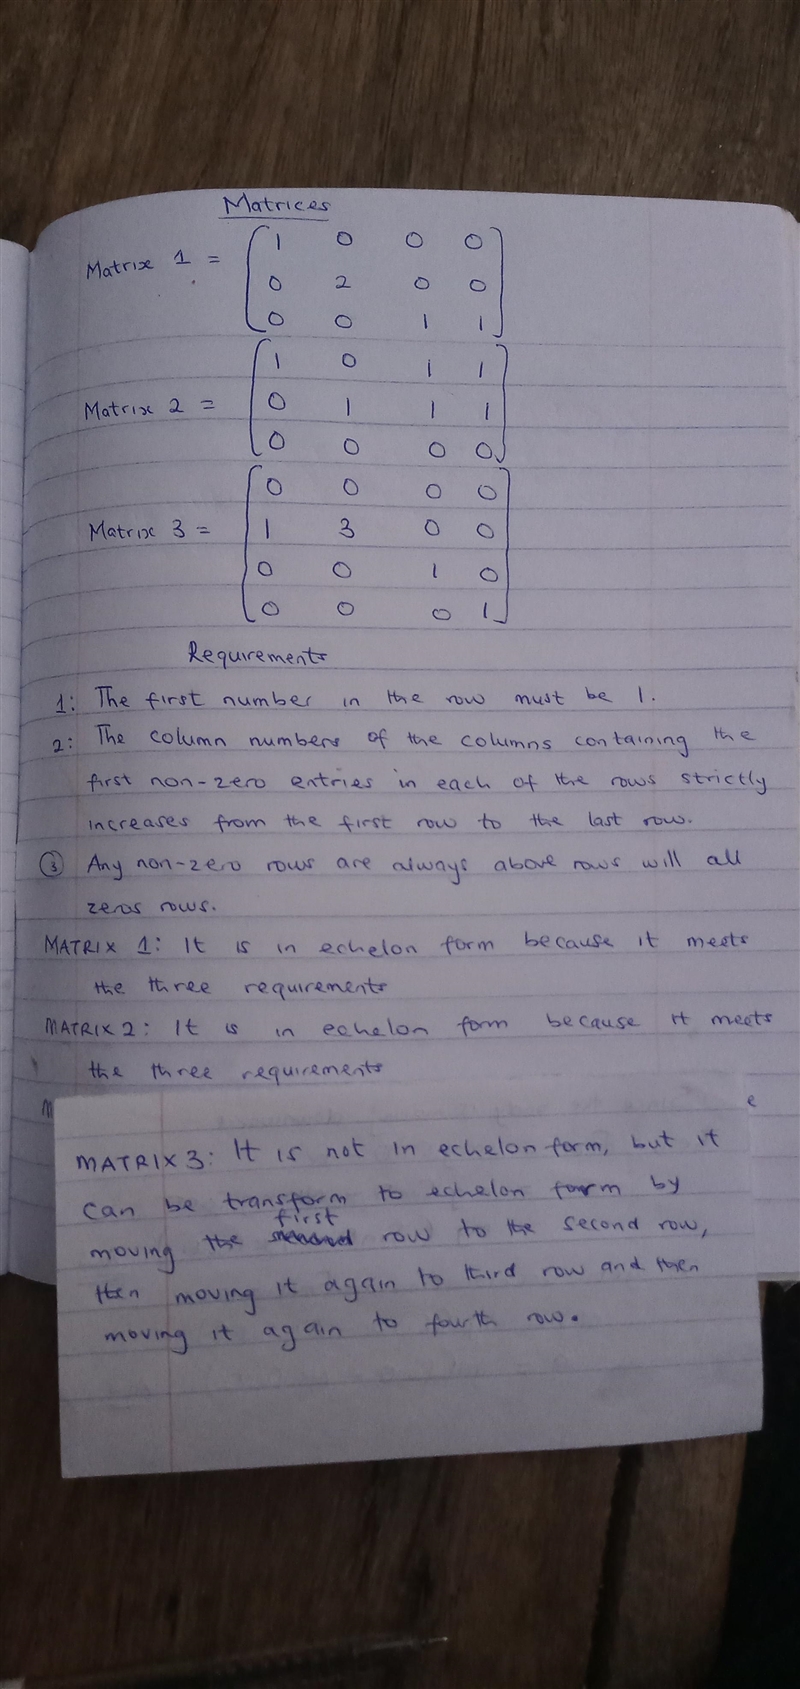 Matrices
Matrix 1 = [ 1 0 0 0
0 2 0 0
0 0 1 1 ]
Matrix 2 = [ 1 0 1 1
0 1 1 1
0 0 0 0 ]
Matrix 3 = [ 0 0 0 0
1 3 0 0
0 0 1 0
0 0 0 1 ]
Requirements
1: The first number in the row must be 1.
2: The column numbers of the columns containing the
first non-zero entries in each of the rows strictly
increases from the first row to the last row.
③ Any non-zero rows are always above rows will all
zeros rows.
MATRIX 1: It is in echelon form because it meets
the three requirements
MATRIX 2: It is in echelon form because it meets
the three requirements
M e
MATRIX 3: It is not in echelon form, but it
can be transform to echelon form by
moving the first row to the second row,
then moving it again to third row and then
moving it again to fourth row.